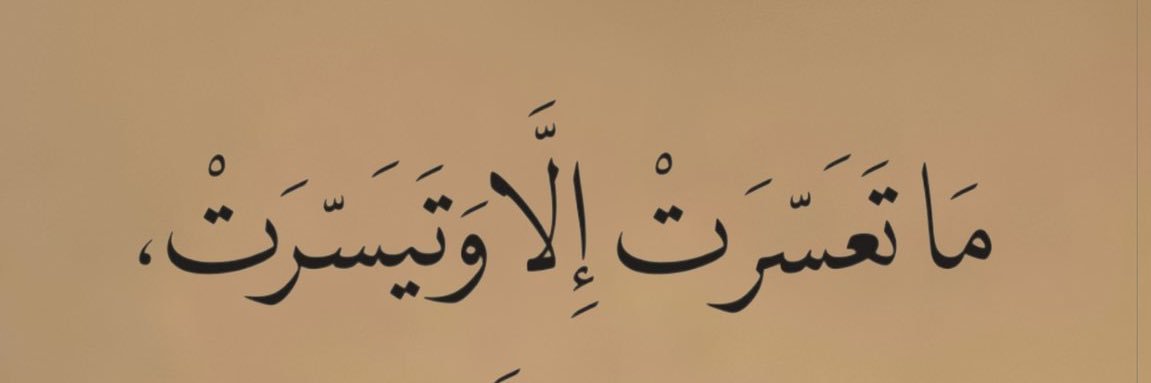 مَا تَعَسَّرَتْ إِلَّا وَتَيَسَّرَتْ،